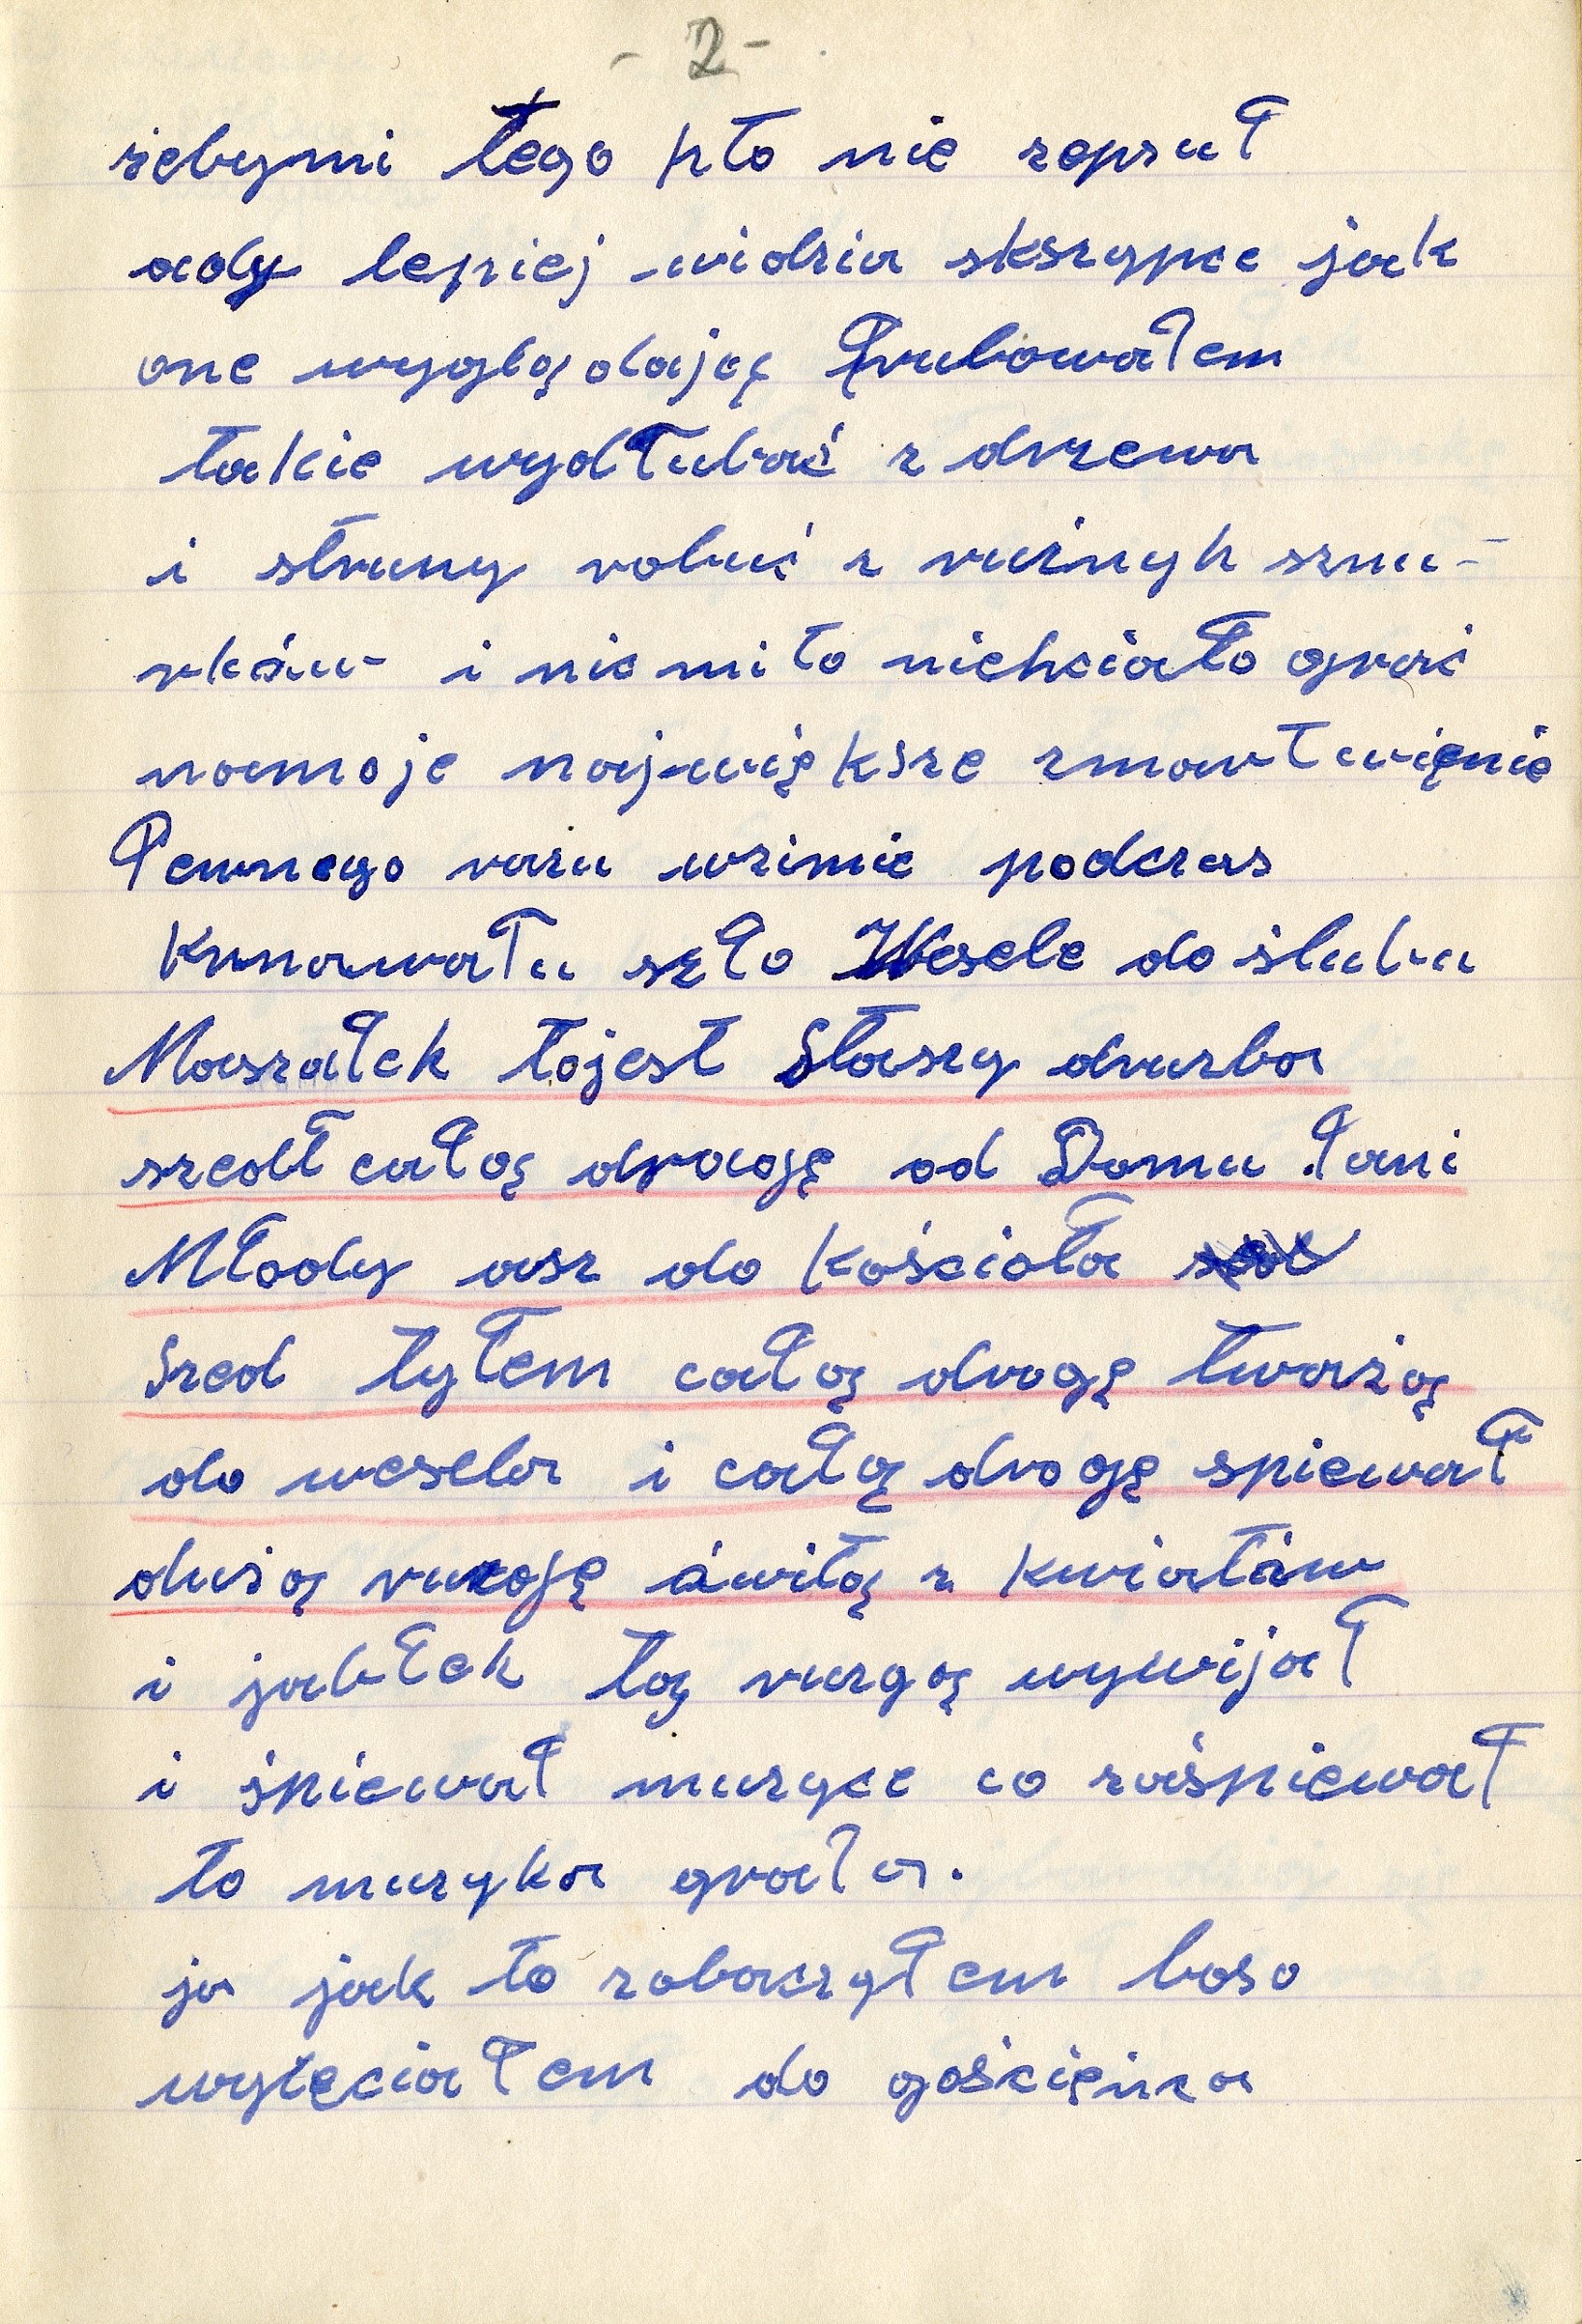 - 2 -
rzebymi tego kto nie zepsuł
ady lepiej widzia skszypce jak
one wyglądają Prubowałem
takie wydłubać z drzewa
i struny robić z rużnyh sznu-
rków i nic mi to niehciało grać
namoje największe zmartwięnie
Pewnego razu wzimie podczas
Knnawału szło Wesele do ślubu
Maszałek tojest Staszy drużba
szedł całą drogę od Domu Pani
Młody asz do kościoła
Szed tyłem całą drogę twarżą
do wesela i całą drogę spiewał
dużą ruzgę awitą z kwiatów
i jabłek tą ruzgą wywijał
i śpiewał muzyce co zaśpiewał
to muzyka grała.
ja jak to zobaczyłem boso
wyleciałem do gościęnca